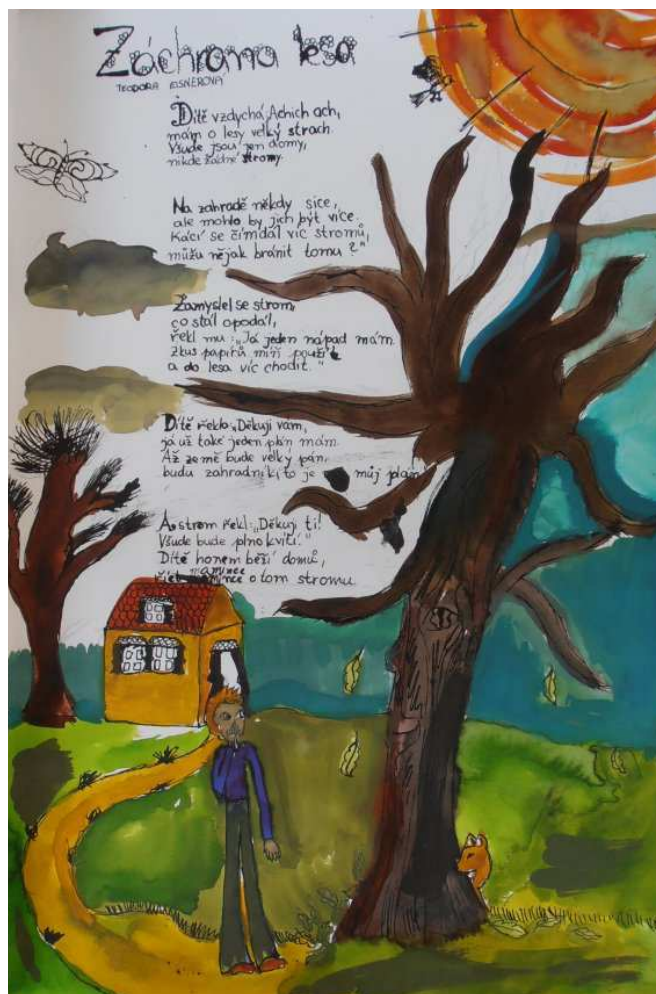 Záchrana lesa
TEODORA EISNEROVÁ
Dítě vzdychá „Achich ach,
mám o lesy velký strach.
Všude jsou jen domy,
nikde žádné stromy.
Na zahradě někdy sice,
ale mohlo by jich být více.
Kácí se čím dál víc stromů,
můžu nějak bránit tomu?"
Zamyslel se strom,
co stál opodál,
řekl mu: „Já jeden nápad mám.
Zkus papírů míň použít
a do lesa víc chodit."
Dítě řeklo: „Děkuji vám,
já už také jeden plán mám.
Až ze mě bude velký pán,
budu zahradník, to je můj plán."
A strom řekl: „Děkuji ti!
Všude bude plno kvítí."
Dítě honem běží domů,
říct mamince o tom stromu.